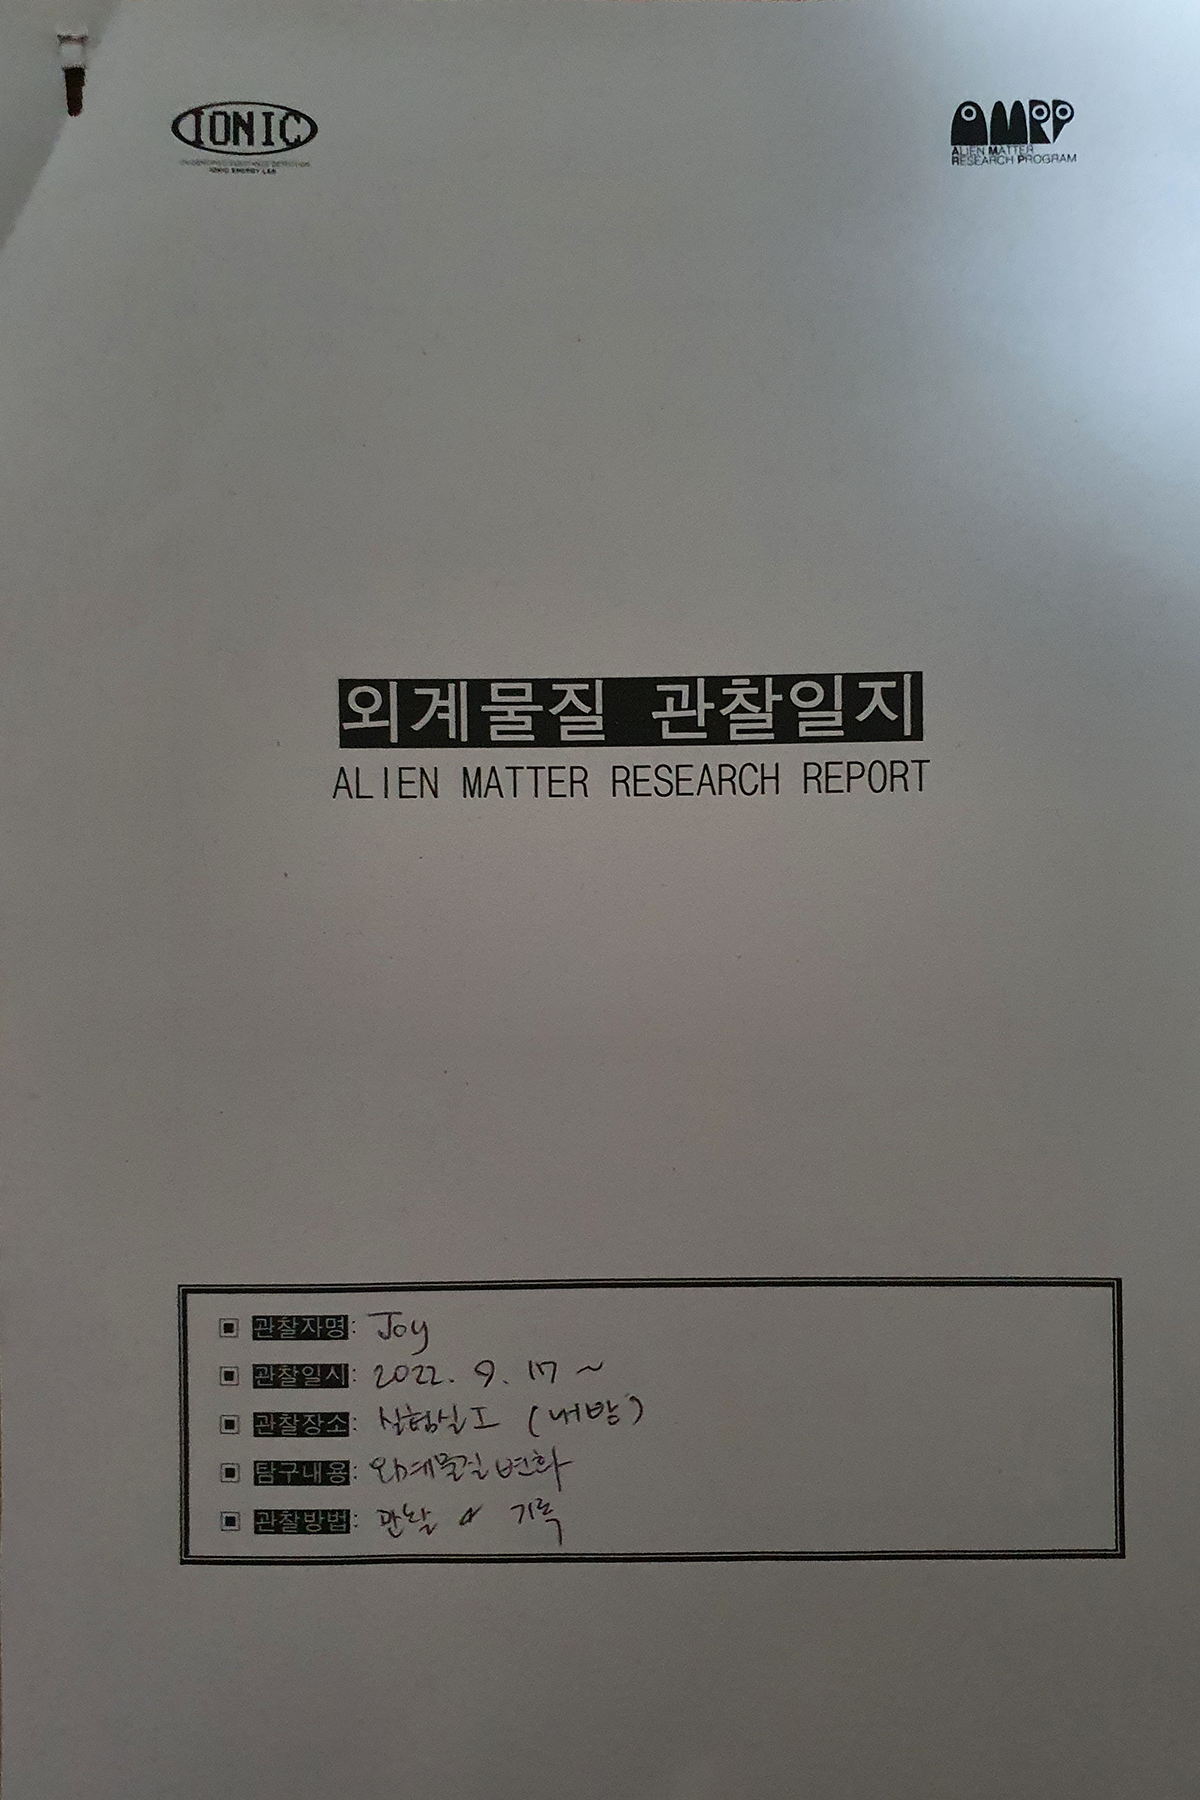 IONIC
IONIC ENERGY LAB
AMRP
ALIEN MATTER
RESEARCH PROGRAM
외계물질 관찰일지
ALIEN MATTER RESEARCH REPORT
관찰자명: Joy
관찰일시: 2022. 9. 17 ~
관찰장소: 실험실 I (내방)
탐구내용: 외계물질 변화
관찰방법: 관찰 & 기록